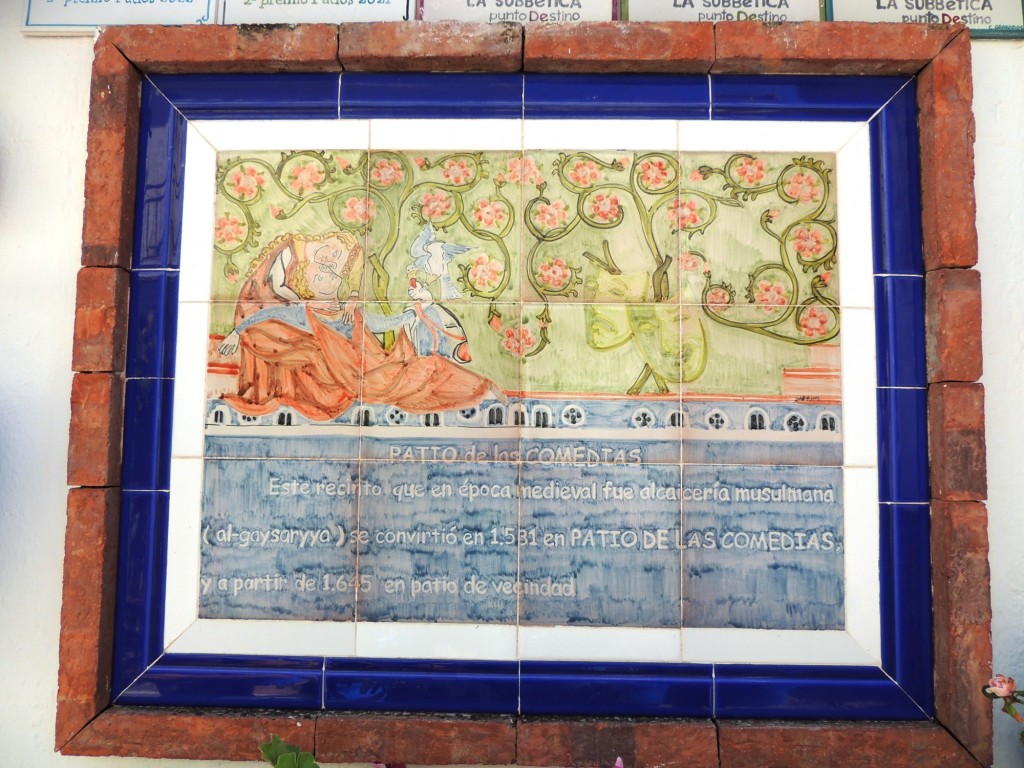 2º premio Patios 2022
2º premio Patios 2021
LA SUBBÉTICA
punto DeStino
LA SUBBÉTICA
punto DeStino
LA SUBBÉTICA
punto DeStino
PATIO de las COMEDIAS
Este recinto que en época medieval fue alcaicería musulmana
( al-gaysaryya ) se convirtió en 1.581 en PATIO DE LAS COMEDIAS,
y a partir de 1.645 en patio de vecindad